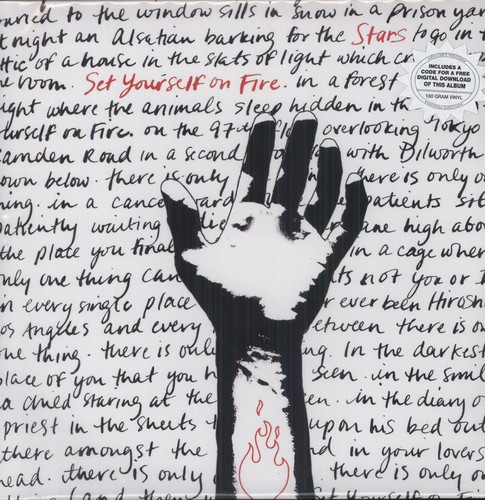 to the window sills in snow in a prison
night an Alsatian barking for the Stars to go in
of a house in the slats of light which
room. Set Yourself on Fire. in a forest
where the animals sleep hidden in
on Fire. on the 97th overlooking Tokyo
Camden Road in a second with Dilworth
down below. there is only there is only
in a patients
patiently waiting high above
the place you in a cage where
only one thing can not you or
in every single place or ever been
Los Angeles and every between there is
one thing. there is only In the darkest
place of you that you seen. in the
a child staring at the in the diary
priest in the sheets upon his bed
there amongst the in your
there is only there is only
INCLUDES A
CODE FOR A FREE
DIGITAL DOWNLOAD
OF THIS ALBUM
180 GRAM VINYL